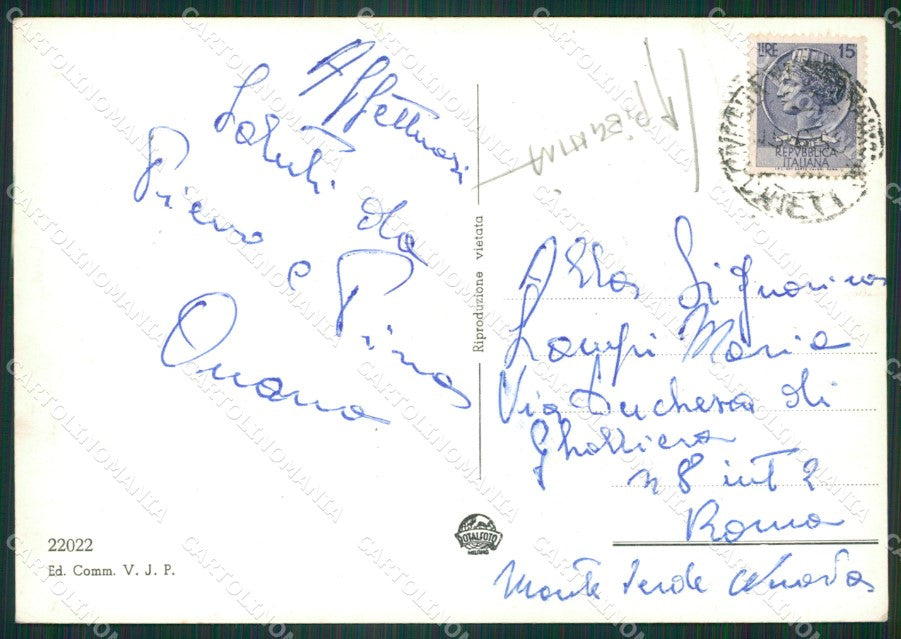 Affettuosi
Saluti da
Piero e Pina
Onano
22022
Ed. Comm. V. J. P.
Riproduzione vietata
TOTALFOTO
MILANO
LIRE 15
REPVBBLICA
ITALIANA
CHIETI
Alla Signorina
Lampi Maria
Via Duchessa di
Galliera
n 8 int 2
Roma
Monte Verde
CARTOLINOMANIA